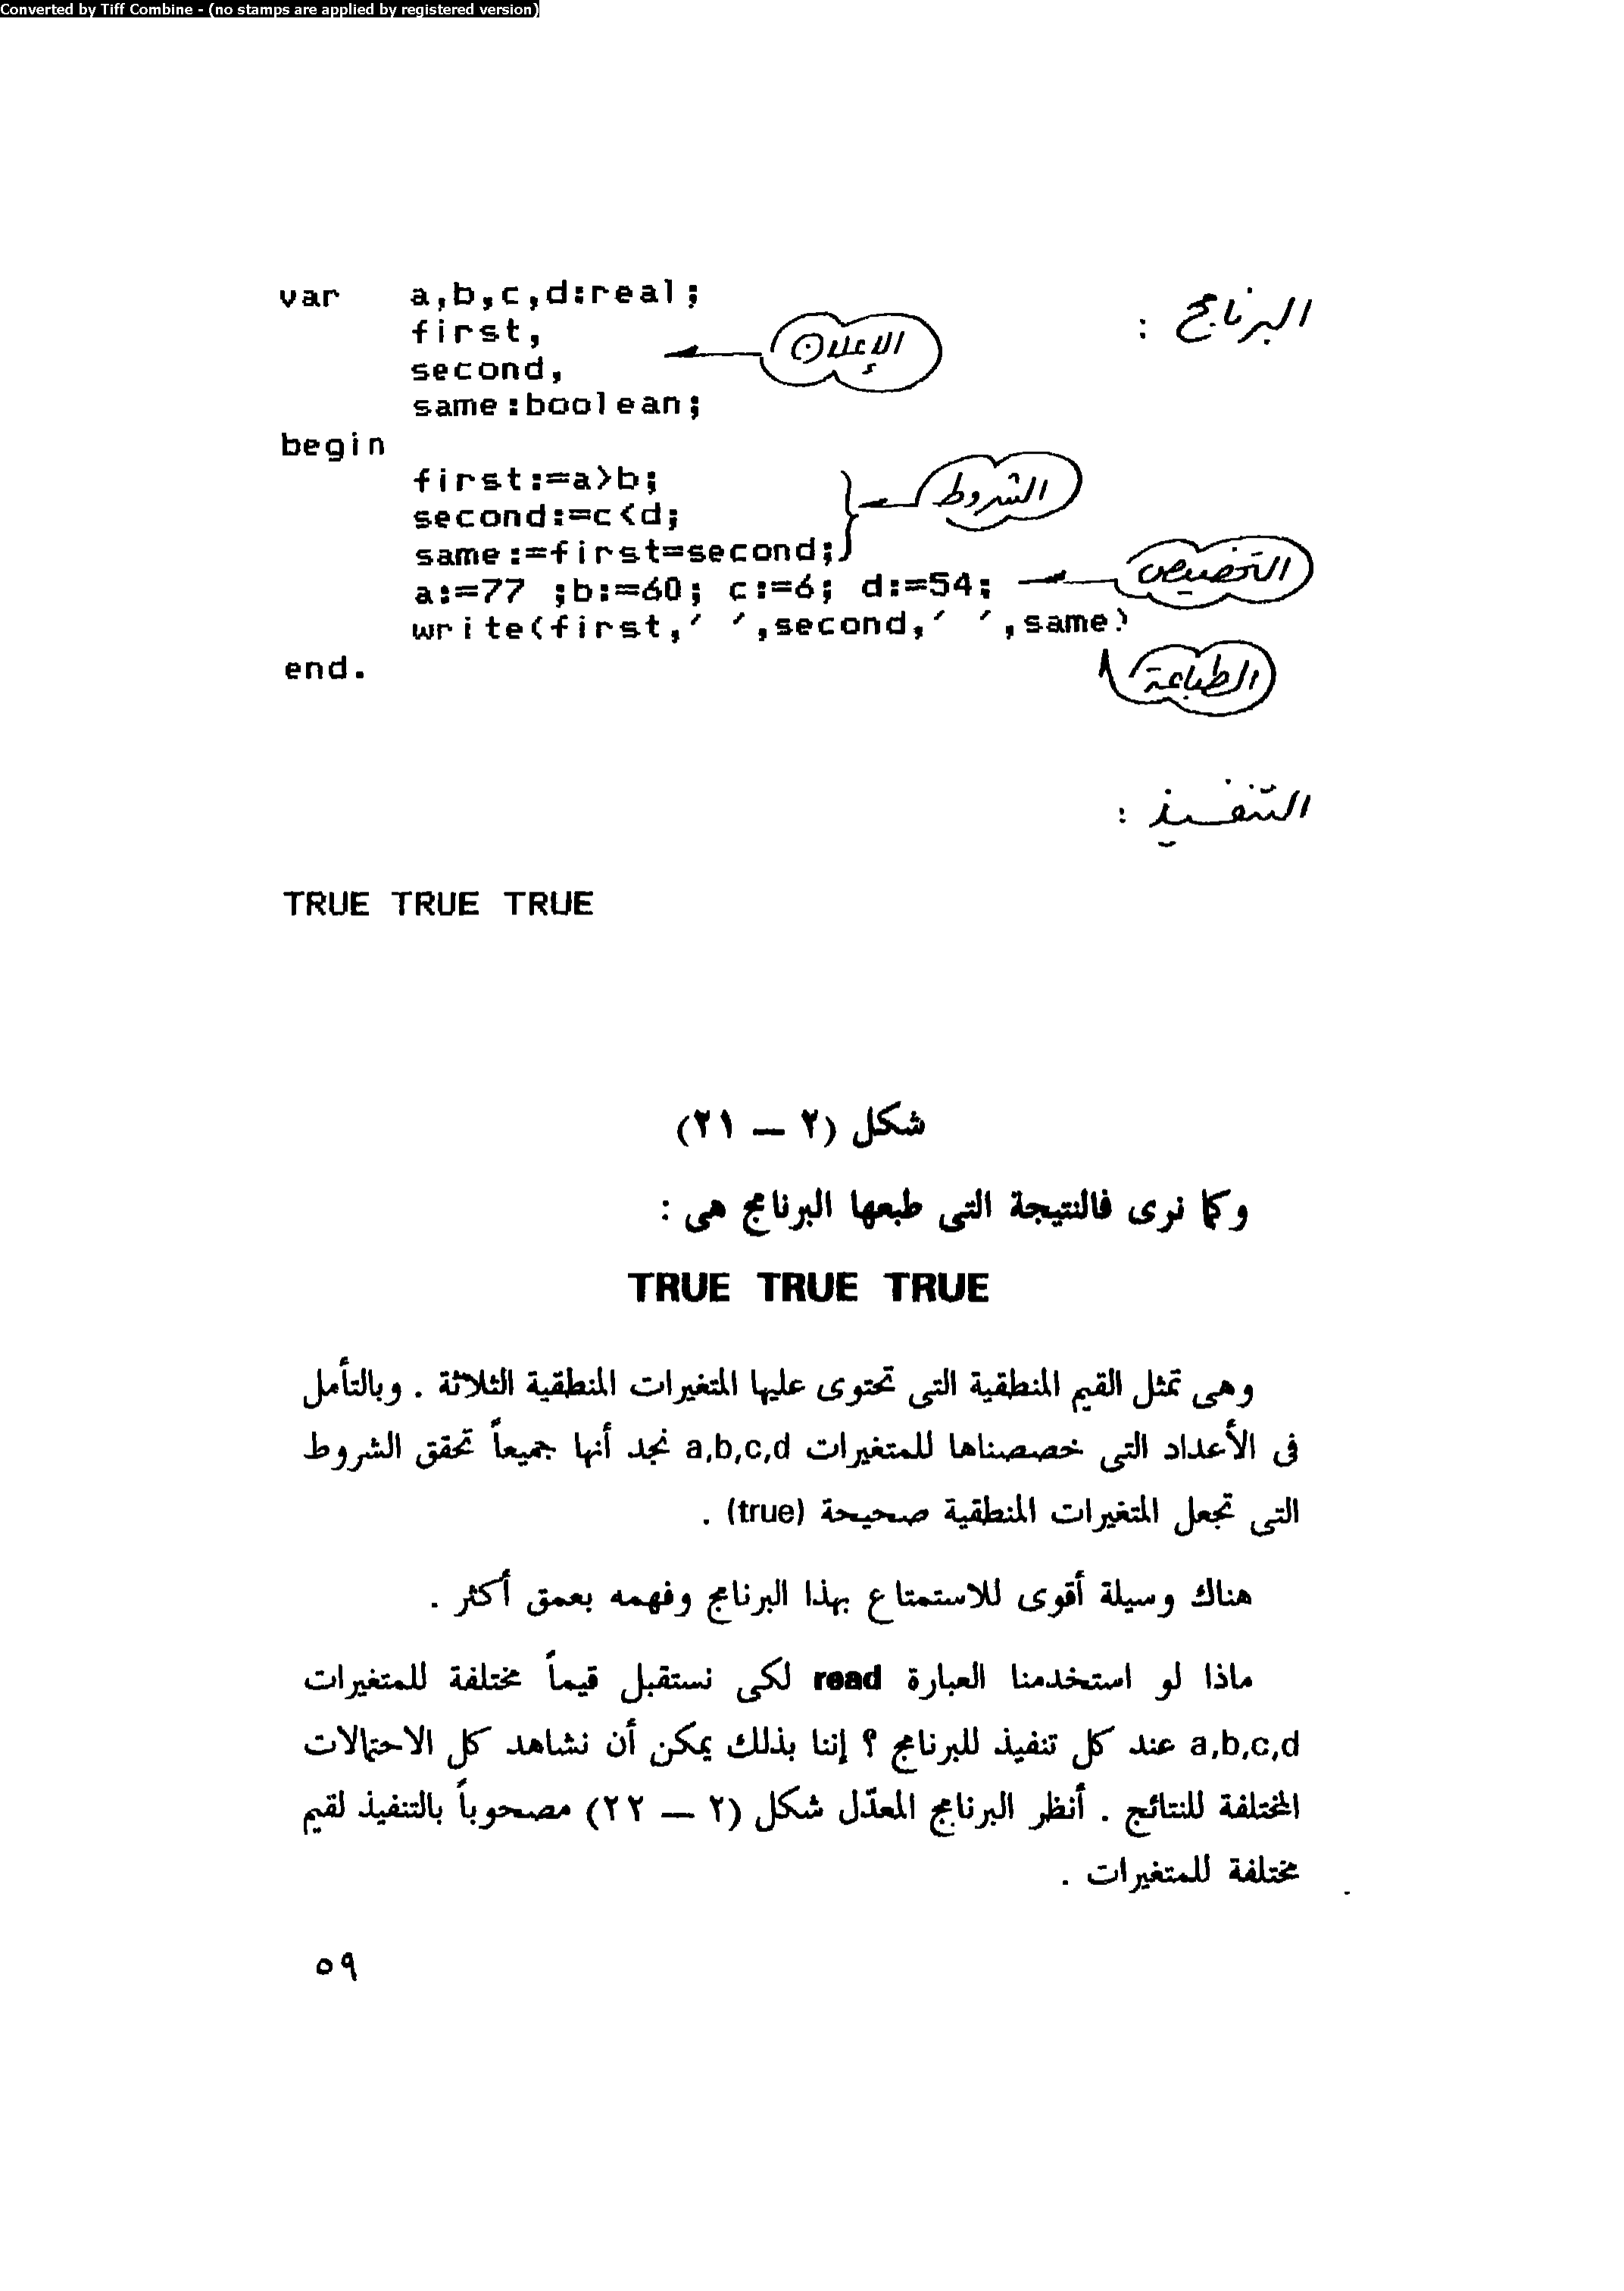 Converted by Tiff Combine - (no stamps are applied by registered version)
البرنامج :
var a,b,c,d:real;
first,
الإعلان
second,
same:boolean;
begin
first:=a>b;
الشروط
second:=c<d;
same:=first=second;
التخصيص
a:=77 ;b:=60; c:=6; d:=54;
write(first,' ',second,' ',same)
الطباعة
end.
التنفيذ :
TRUE TRUE TRUE
شكل (٢ – ٢١)
وكما نرى فالنتيجة التى طبعها البرنامج هى :
TRUE TRUE TRUE
وهى تمثل القيم المنطقية التى تحتوى عليها المتغيرات المنطقية الثلاثة . وبالتأمل
فى الأعداد التى خصصناها للمتغيرات a,b,c,d نجد أنها جميعاً تحقق الشروط
التى تجعل المتغيرات المنطقية صحيحة (true) .
هناك وسيلة أقوى للاستمتاع بهذا البرنامج وفهمه بعمق أكثر .
ماذا لو استخدمنا العبارة read لكى نستقبل قيماً مختلفة للمتغيرات
a,b,c,d عند كل تنفيذ للبرنامج ؟ إننا بذلك يمكن أن نشاهد كل الاحتمالات
المختلفة للنتائج . أنظر البرنامج المعدّل شكل (٢ – ٢٢) مصحوباً بالتنفيذ لقيم
مختلفة للمتغيرات .
٥٩